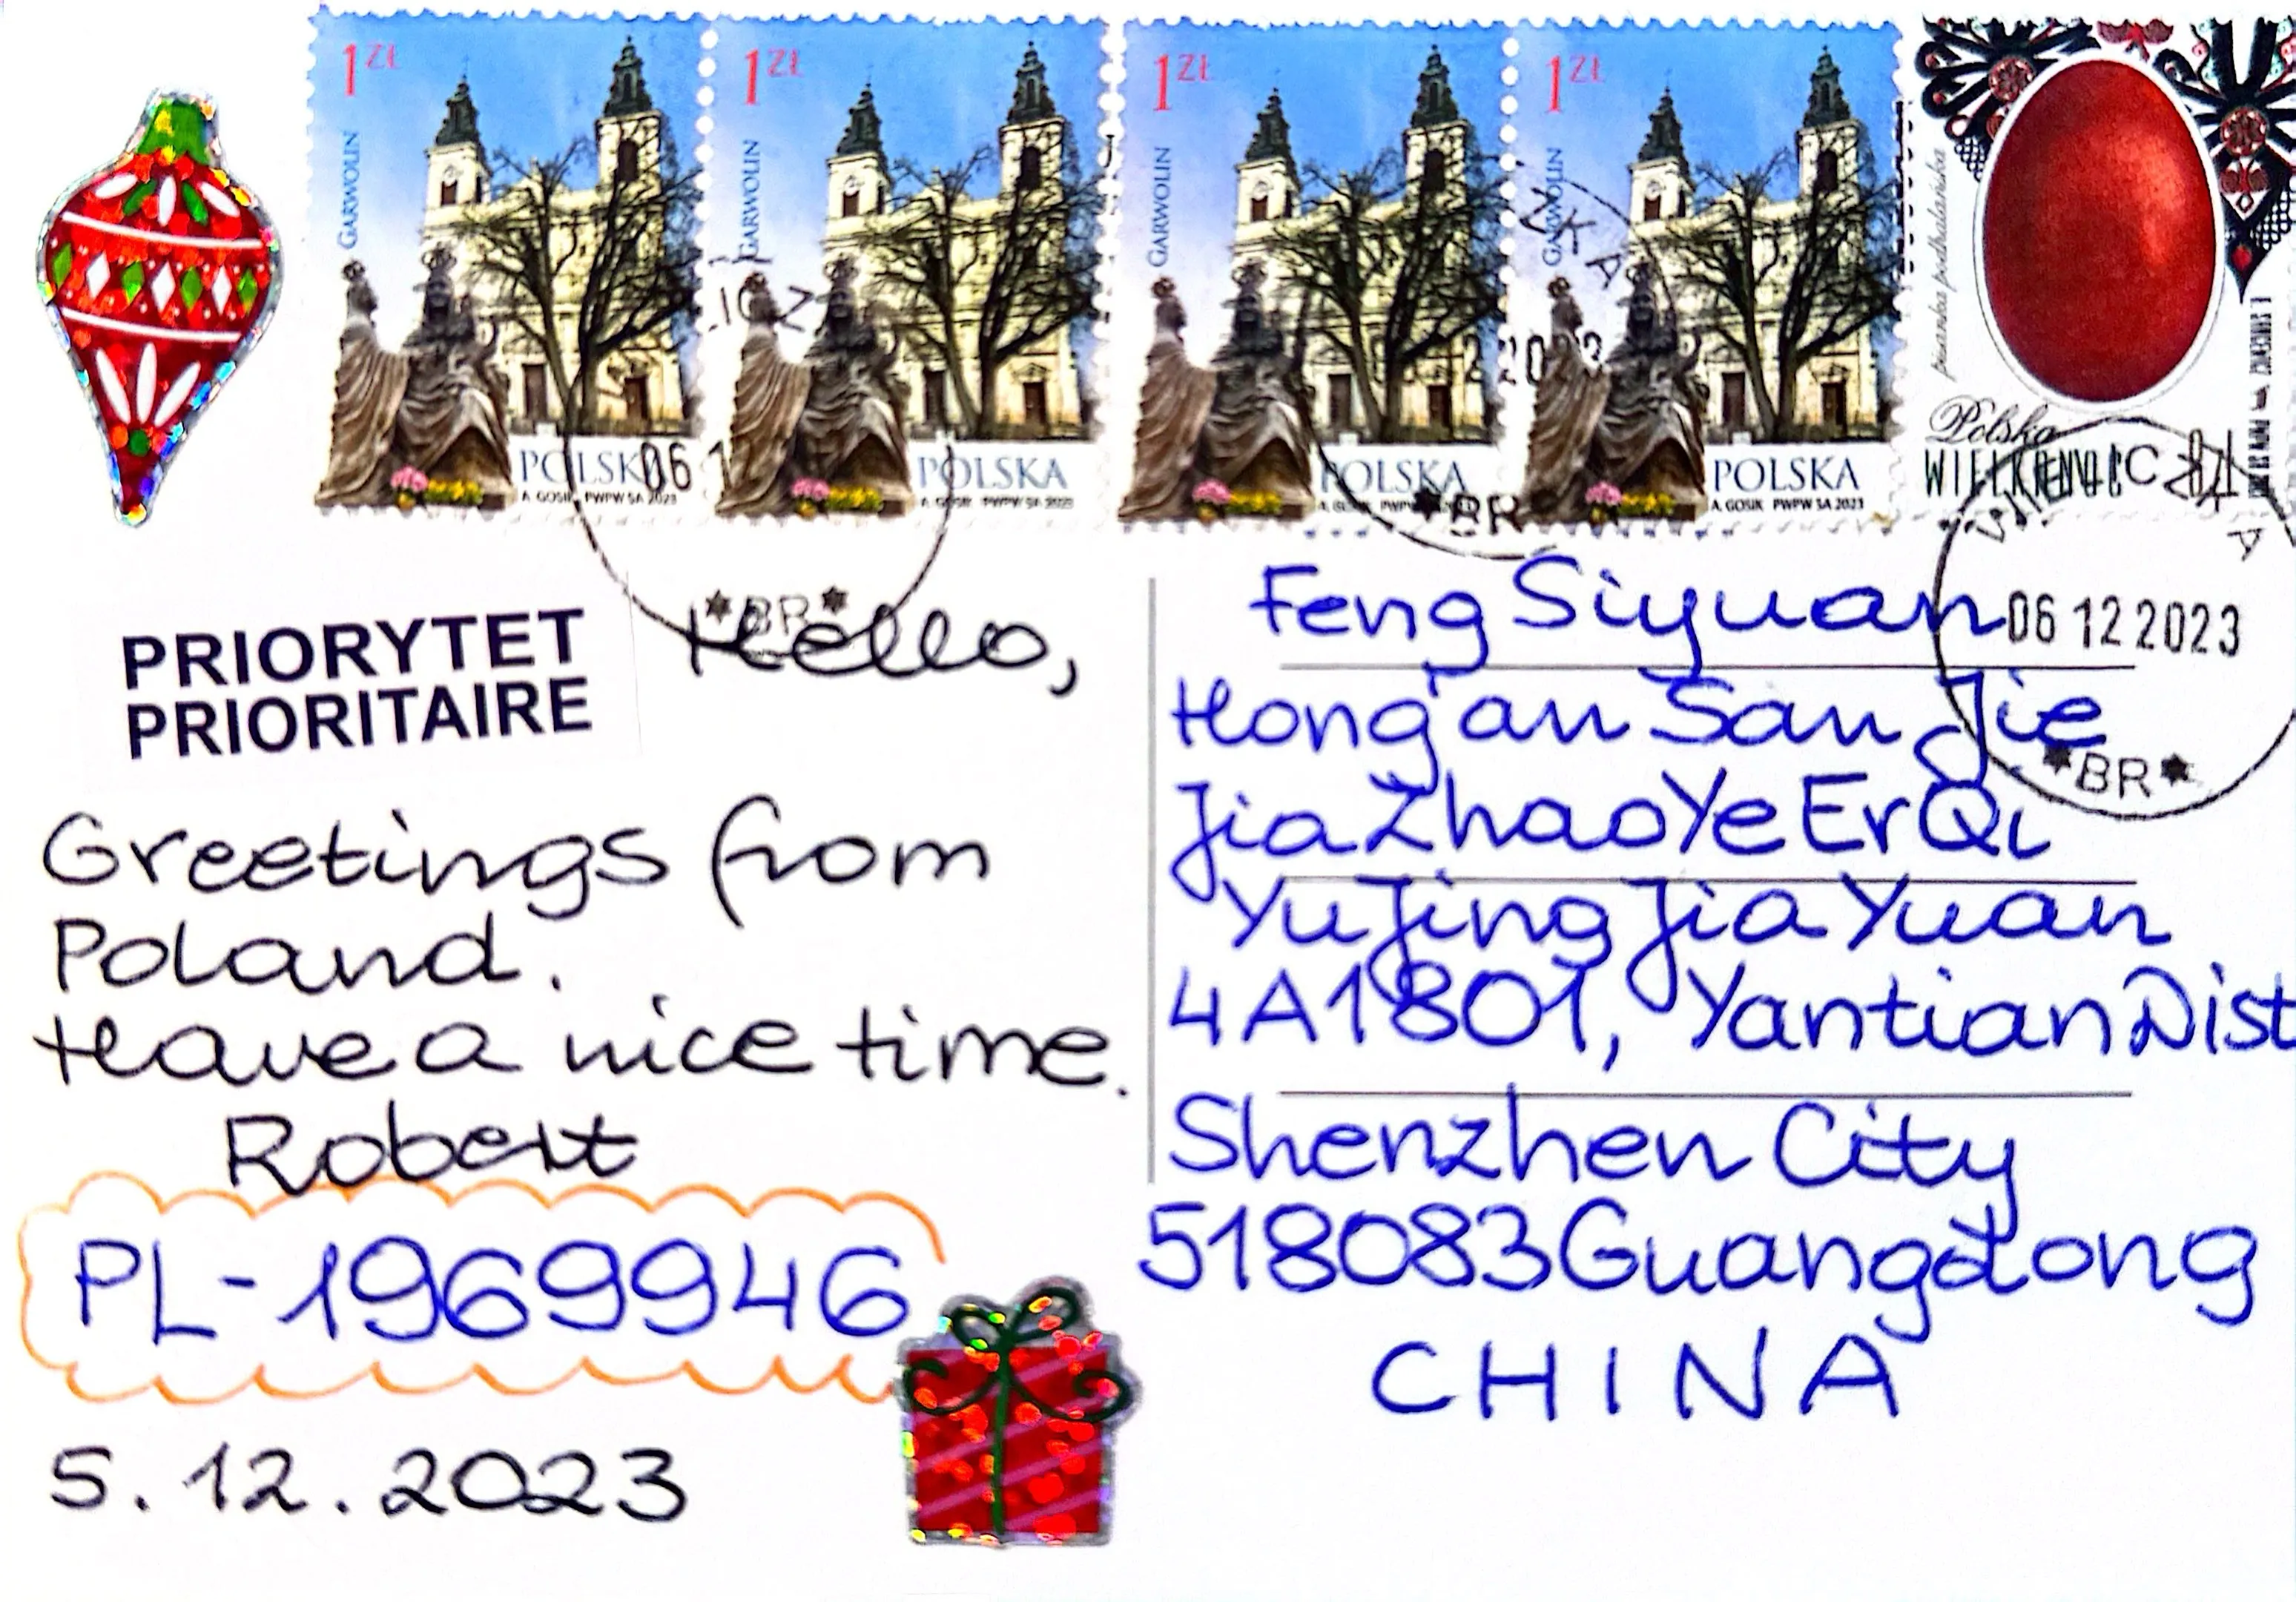 1 ZŁ
GARWOLIN
POLSKA
A. GOSIK PWPW SA 2023
1 ZŁ
GARWOLIN
POLSKA
A. GOSIK PWPW SA 2023
1 ZŁ
GARWOLIN
POLSKA
1 ZŁ
GARWOLIN
POLSKA
A. GOSIK PWPW SA 2023
pisanka podhalańska
Polska
WIELKANOC
06
*BR*
2023
*BR
06 12 2023
*BR*
PRIORYTET
PRIORITAIRE
Hello,
Greetings from
Poland.
Have a nice time.
Robert
PL-1969946
5.12.2023
Feng Siyuan
Hong'an San Jie
JiaZhaoYeErQi
YuJingJiaYuan
4A1801, Yantian Dist
Shenzhen City
518083 Guangdong
CHINA